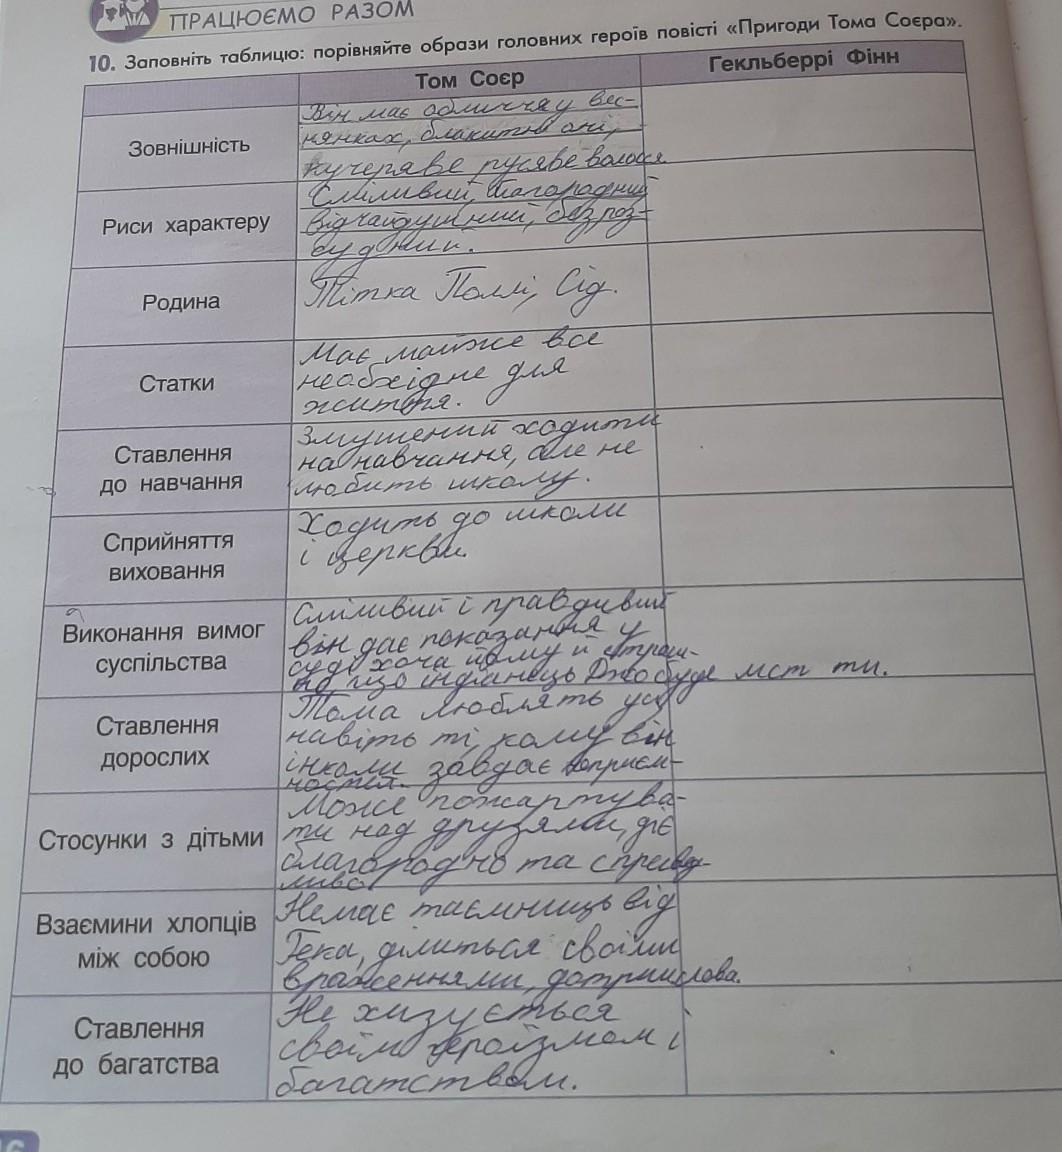 ПРАЦЮЄМО РАЗОМ
10. Заповніть таблицю: порівняйте образи головних героїв повісті «Пригоди Тома Соєра».
Том Соєр
Гекльберрі Фінн
Зовнішність
Він має обличчя у вес-
нянках, блакитні очі,
кучеряве русяве волосся
Риси характеру
Сміливий, благородний
відчайдушний, безроз-
судний.
Родина
Тітка Поллі, Сід.
Статки
Має майже все
необхідне для
життя.
Ставлення
до навчання
Змушений ходити
на навчання, але не
любить школу.
Сприйняття
виховання
Ходить до школи
і церкви.
Виконання вимог
суспільства
Сміливий і правдивий
він дає показання у
суді хоча йому й страш-
но, що індіанець Джо буде мст ти.
Ставлення
дорослих
Тома люблять усі
навіть ті, кому він
інколи завдає неприєм-
ностей.
Стосунки з дітьми
Може пожартува-
ти над друзями, діє
благородно та справед-
ливо
Взаємини хлопців
між собою
Немає таємниць від
Гека, ділиться своїми
враженнями, дотрим слова.
Ставлення
до багатства
Не хизується
своїм героїзмом і
багатством.